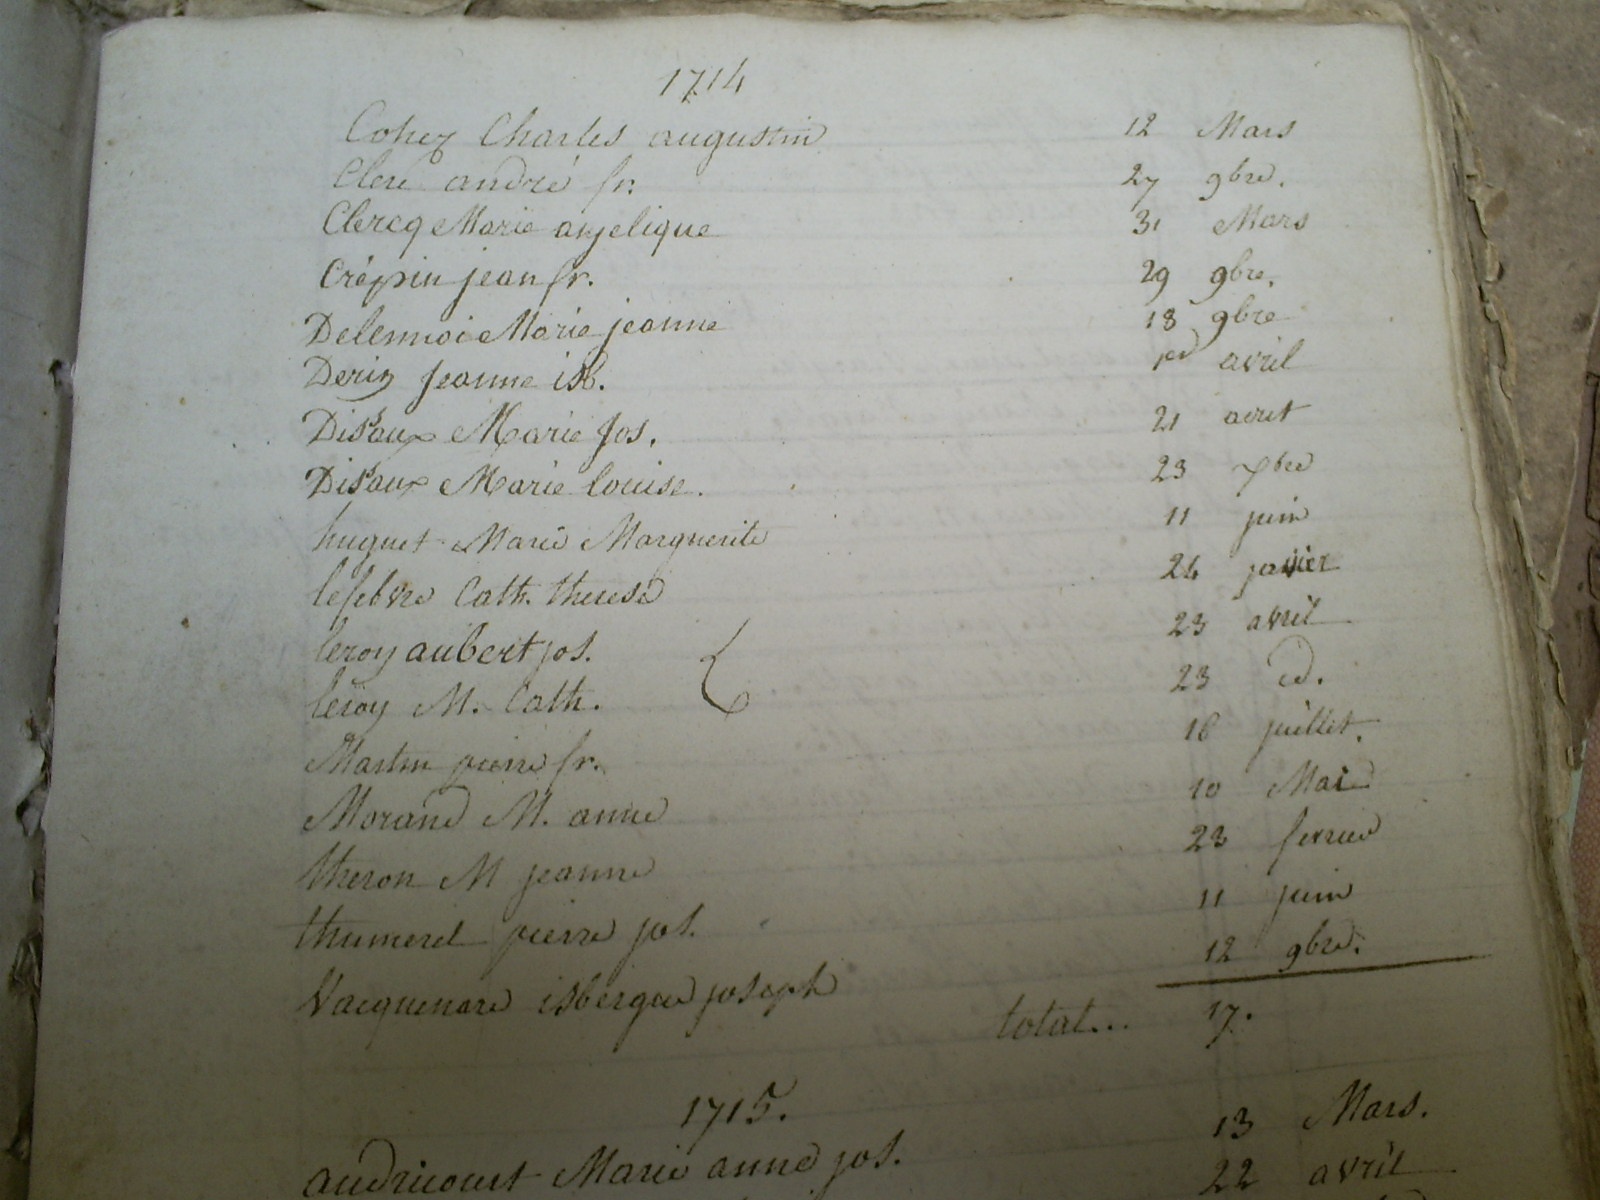 1714
Cohez Charles augustin 12 Mars
Clere andré fr. 27 9bre.
Clercq Marie anjelique 31 Mars
Crépin jean fr. 29 9bre.
Delennoi Marie jeanne 18 9bre
Deriz Jeanne isb. 1er avril
Disaux Marie Jos. 21 aout
Disaux Marie louise. 23 7bre
huguet Marie Marguerite 11 juin
lefebvre Cath. therese 24 javier
leroy aubert jos. 23 avril
leroy M. Cath. 23 id.
Martin pierre fr. 16 juillet.
Morand M. anne 10 Mai
theron M jeanne 23 fevrier
thumerel pierre jos. 11 juin
Vacquenare isbergue joseph 12 9bre.
total... 17.
1715.
audricourt Marie anne jos. 13 Mars.
22 avril